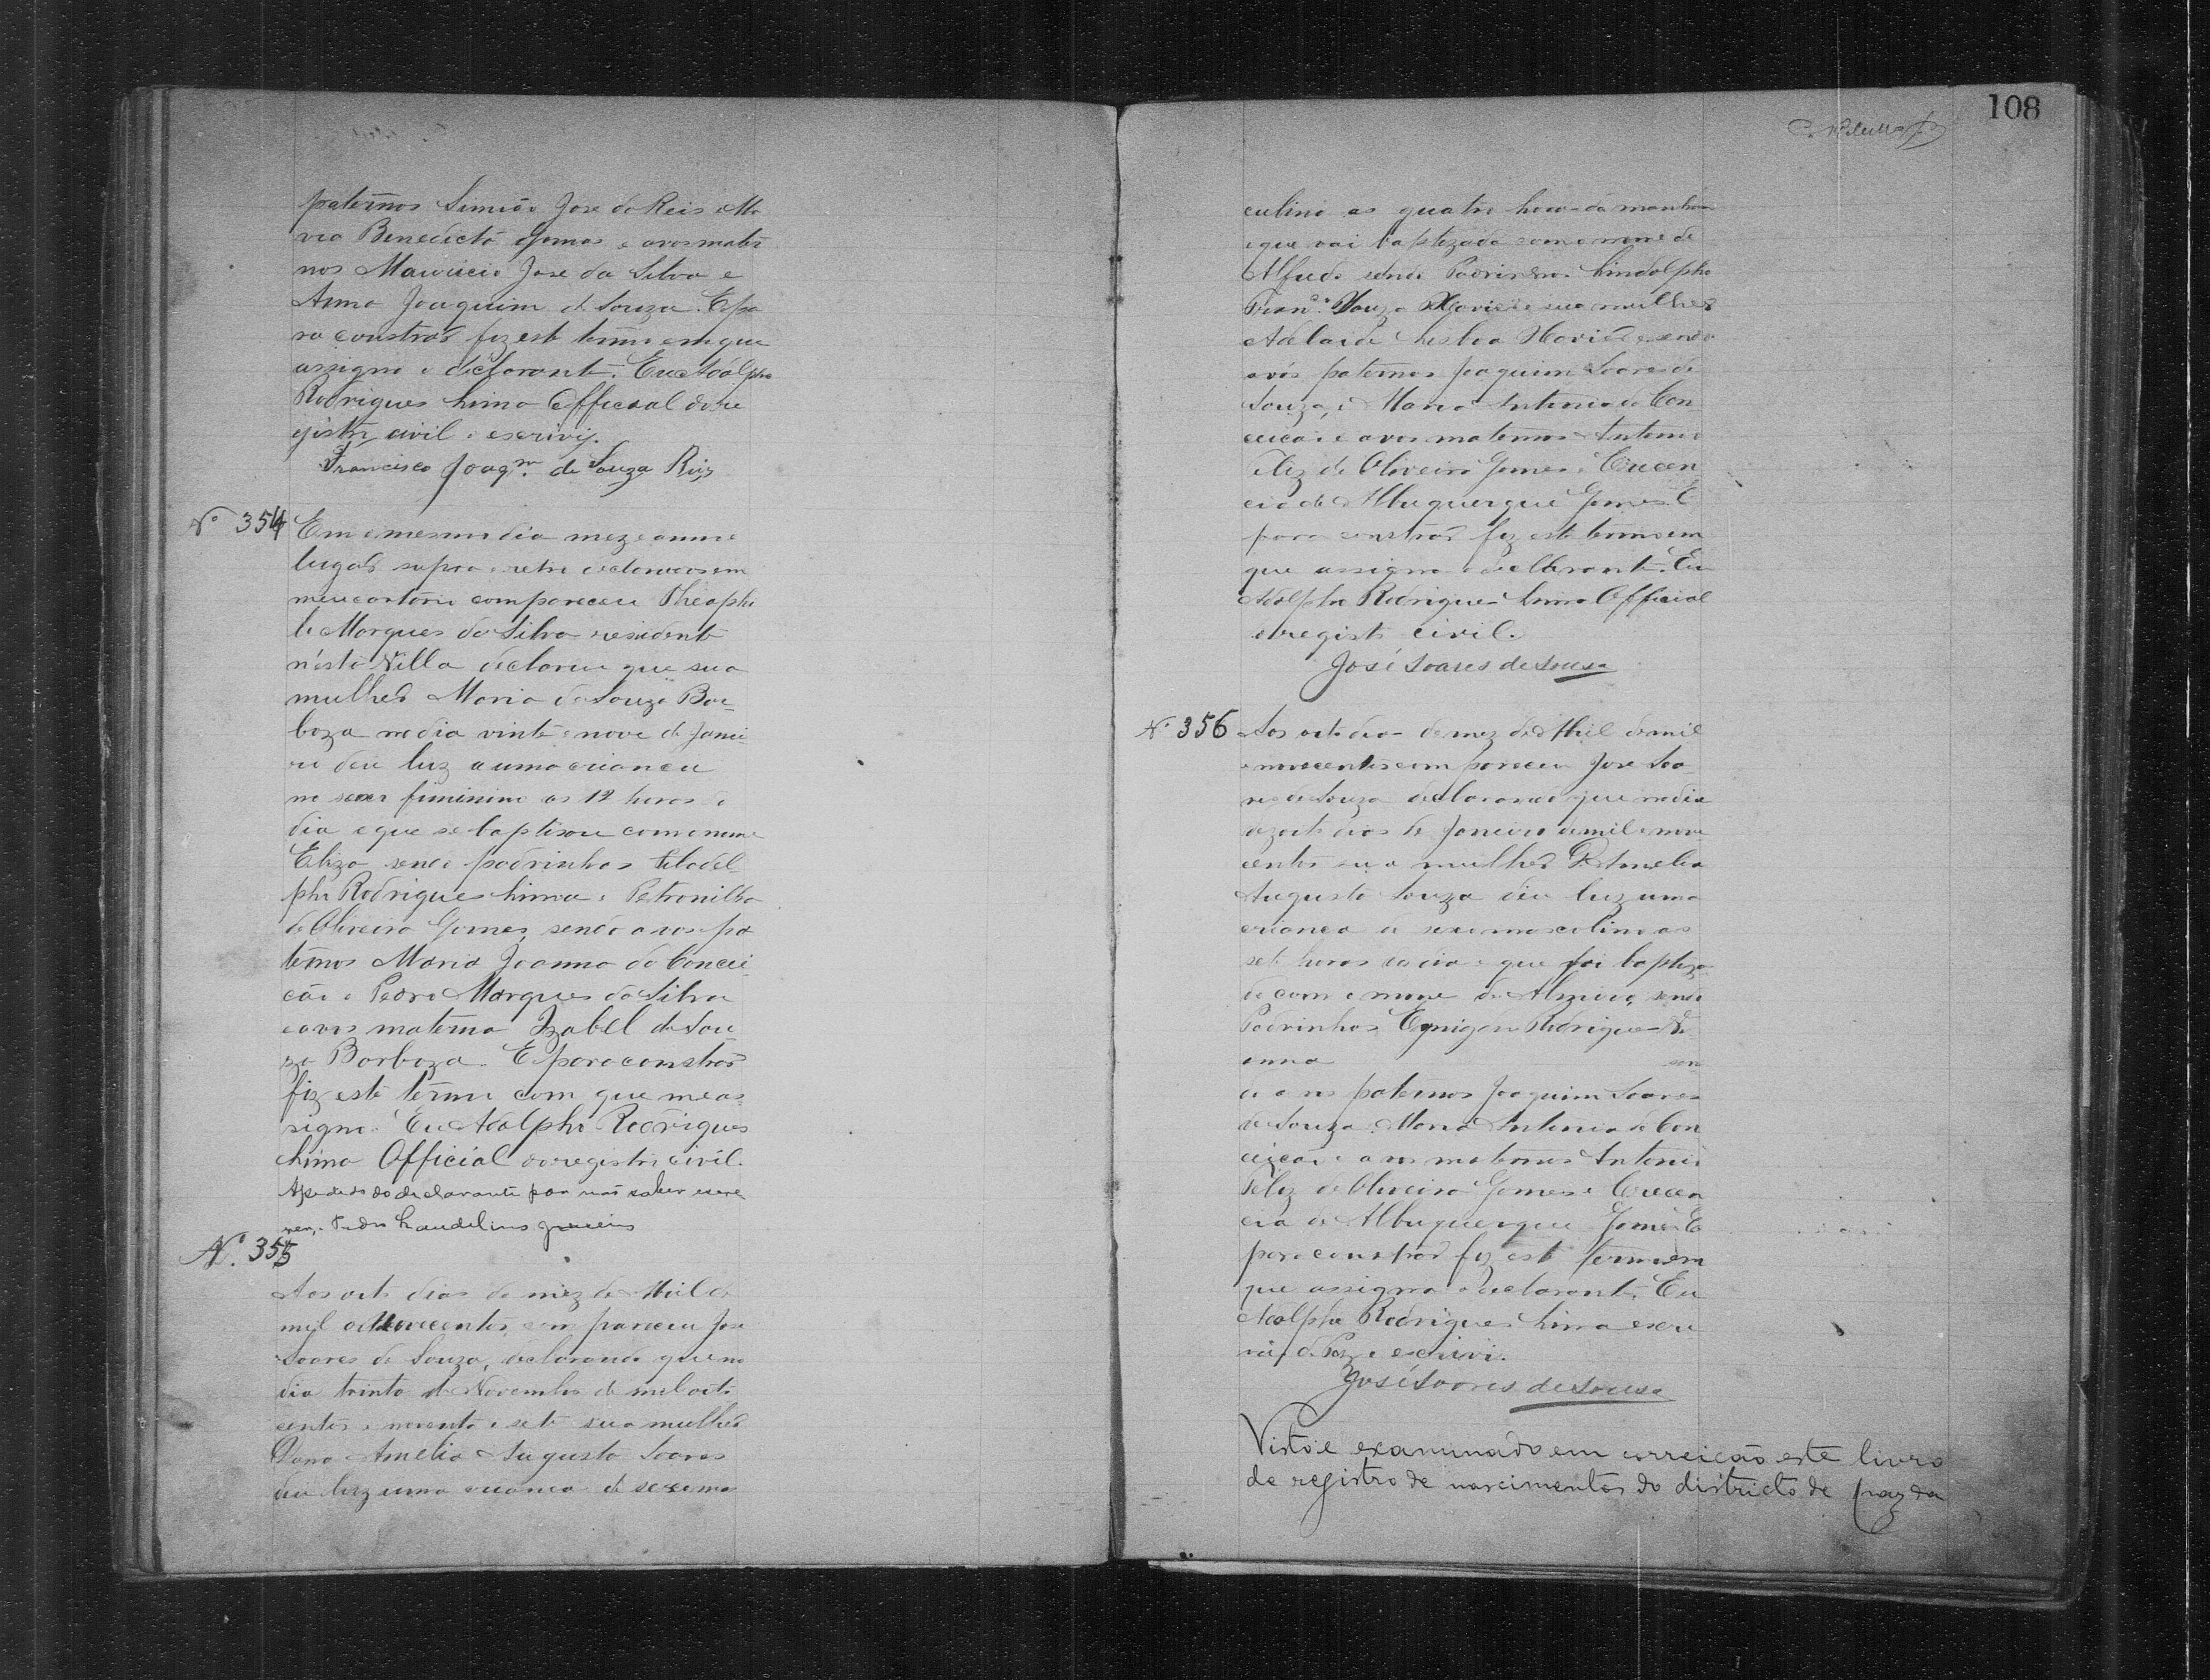 paternos Simião Jose do Reis e Ma
ria Benedicta Gomes e avos mater
nos Mauricio Jose da Silva e
Anna Joaquim de Souza. E pa
ra constrar fiz este termo em que
assigna o declarante. Eu Adolpho
Rodrigues Lima Official do re
gistro civil o escrivij.
Francisco Joaqm. de Souza Ruiz
No 354
Em o mesmo dia mez e anno e
lugar supra e retro declarados em
meu cartorio compareceu Theophi
lo Marques da Silva residente
nesta Villa declarou que sua
mulher Maria de Souza Bar
boza no dia vinte e nove de Janei
ro deu luz a uma criança
no sexo feminino as 12 horas do
dia e que se baptisou com o nome
Eliza sendo padrinhos Filadel
pho Rodrigues Lima e Petronilha
de Oliveira Gomes, sendo avos pa
ternos Maria Joanna da Concei
ção e Pedro Marques da Silva
e avos materna Izabel de Sou
za Barboza. E para constrar
fiz este termo com que me as
signo. Eu Adolpho Rodrigues
Lima Official do registro civil.
Apedido do declarante por não saber escre
ver, Pedro Laudelino
No. 355
Aos oito dias do mez de Abril de
mil novecentos, compareceu Jose
Soares de Souza, declarando que no
dia trinta de Novembro de mil oito
centos e noventa e sete sua mulher
Dona Amelia Augusta Soares
deu luz uma criança de sexo mas
108
culino as quatro horas da manhã
e que vai baptizada com o nome de
Alfredo sendo Padrinhos Lindolpho
Franco. Souza Xavier e sua mulher
Adelaide Lisboa Xavier e sendo
avós paternos Joaquim Soares de
Souza, e Maria Antonia da Con
ceição e avos maternos Antonio
Feliz de Oliveira Gomes e Crecen
cia de Albuquerque Gomes E
para constrar fiz este termo em
que assigna o declarante. Eu
Adolpho Rodrigues Lima Official
do registo civil.
José Soares de Sousa
No 356
Aos oito dias do mez de Abril de mil
e novecentos compareceu Jose Soa
res de Souza declarando que no dia
dezoito dias de Janeiro de mil e nove
centos sua mulher D. Amelia
Augusta Souza deu luz uma
criança de sexo mascolino as
sete horas do dia e que foi baptiza
do com o nome de sendo
Padrinhos Rodrigues
anna sen
do avos paternos Joaquim Soares
de Souza e Maria Antonia da Con
ceição e avos maternos Antonio
Feliz de Oliveira Gomes e Crecen
cia de Albuquerque Gomes E
para constrar fiz este termo em
que assigna o declarante. Eu
Adolpho Rodrigues Lima escri
vão de Paz o escrivi.
José Soares de Sousa
Visto e examinado em correição este livro
de registro de nascimentos do districto de paz da